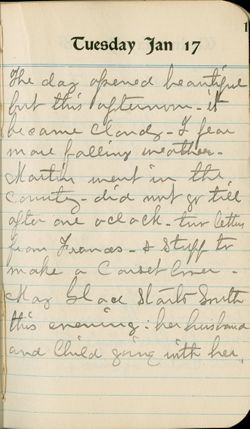 1
Tuesday Jan 17
The day opened beautiful
but this afternoon - it
became cloudy - I fear
more falling weather.
Martin went in the
country - did not go till
after one oclock - two letters
from Frances - & Stuff to
make a Corset Cover -
May Slack Starts South
this evening - her husband
and Child going with her.